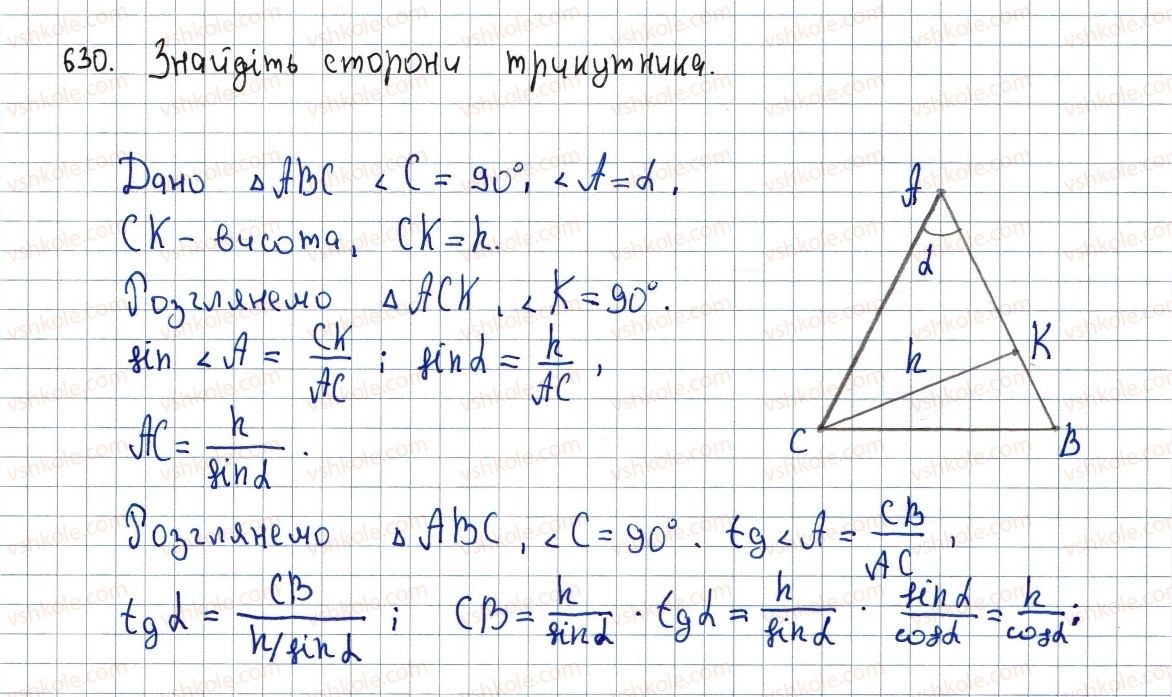 630. Знайдіть сторони трикутника.
Дано △ABC ∠C = 90°, ∠A = α,
CK – висота, CK = h.
Розглянемо △ACK, ∠K = 90°.
sin ∠A = CK/AC ; sin α = h/AC ,
AC = h/sin α .
Розглянемо △ABC, ∠C = 90°. tg ∠A = CB/AC ,
tg α = CB/(h/sin α) ; CB = h/sin α · tg α = h/sin α · sin α/cos α = h/cos α ;
A
α
K
h
C
B
vshkole.com